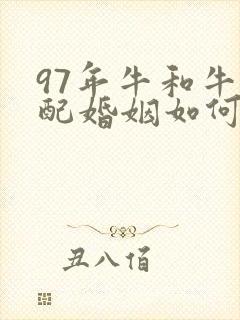 97年牛和牛
配婚姻如何
丑八佰